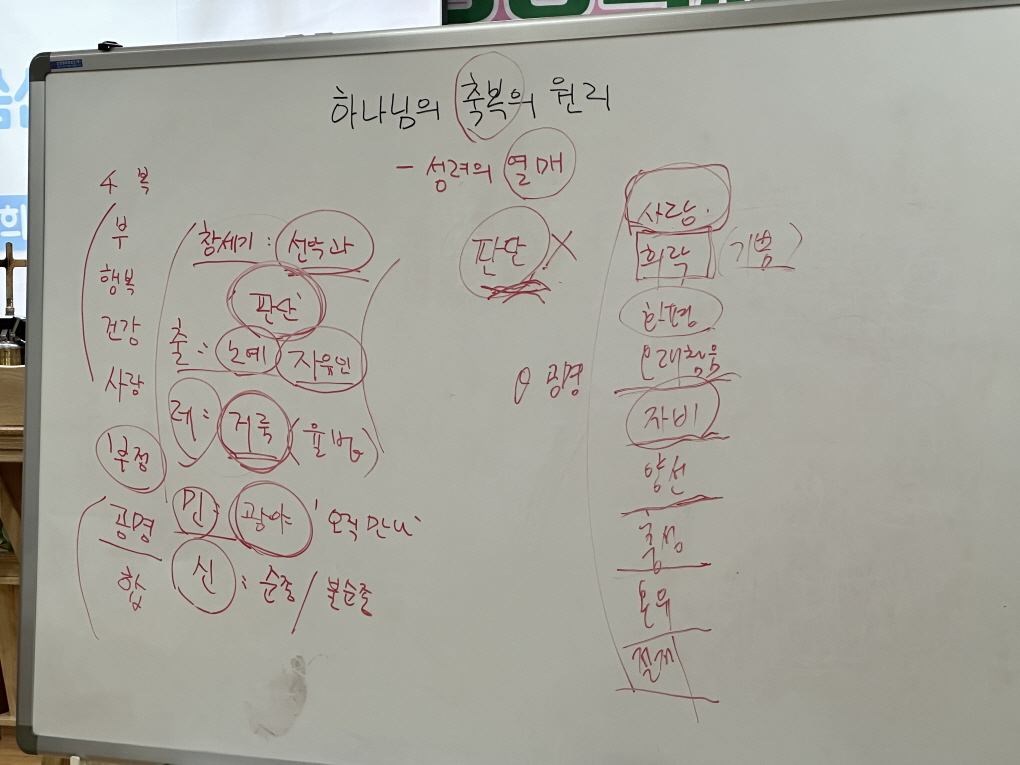 하나님의 축복의 원리
- 성령의 열매
축복
부
행복
건강
사랑
부정
공명
합
창세기 : 선악과
판단
출 : 노예 자유인
레 : 거룩 (율법)
민 : 광야 '오직 만나'
신 : 순종 / 불순종
판단 X
사랑.
희락 (기쁨)
화평
오래참음
자비
양선
충성
온유
절제